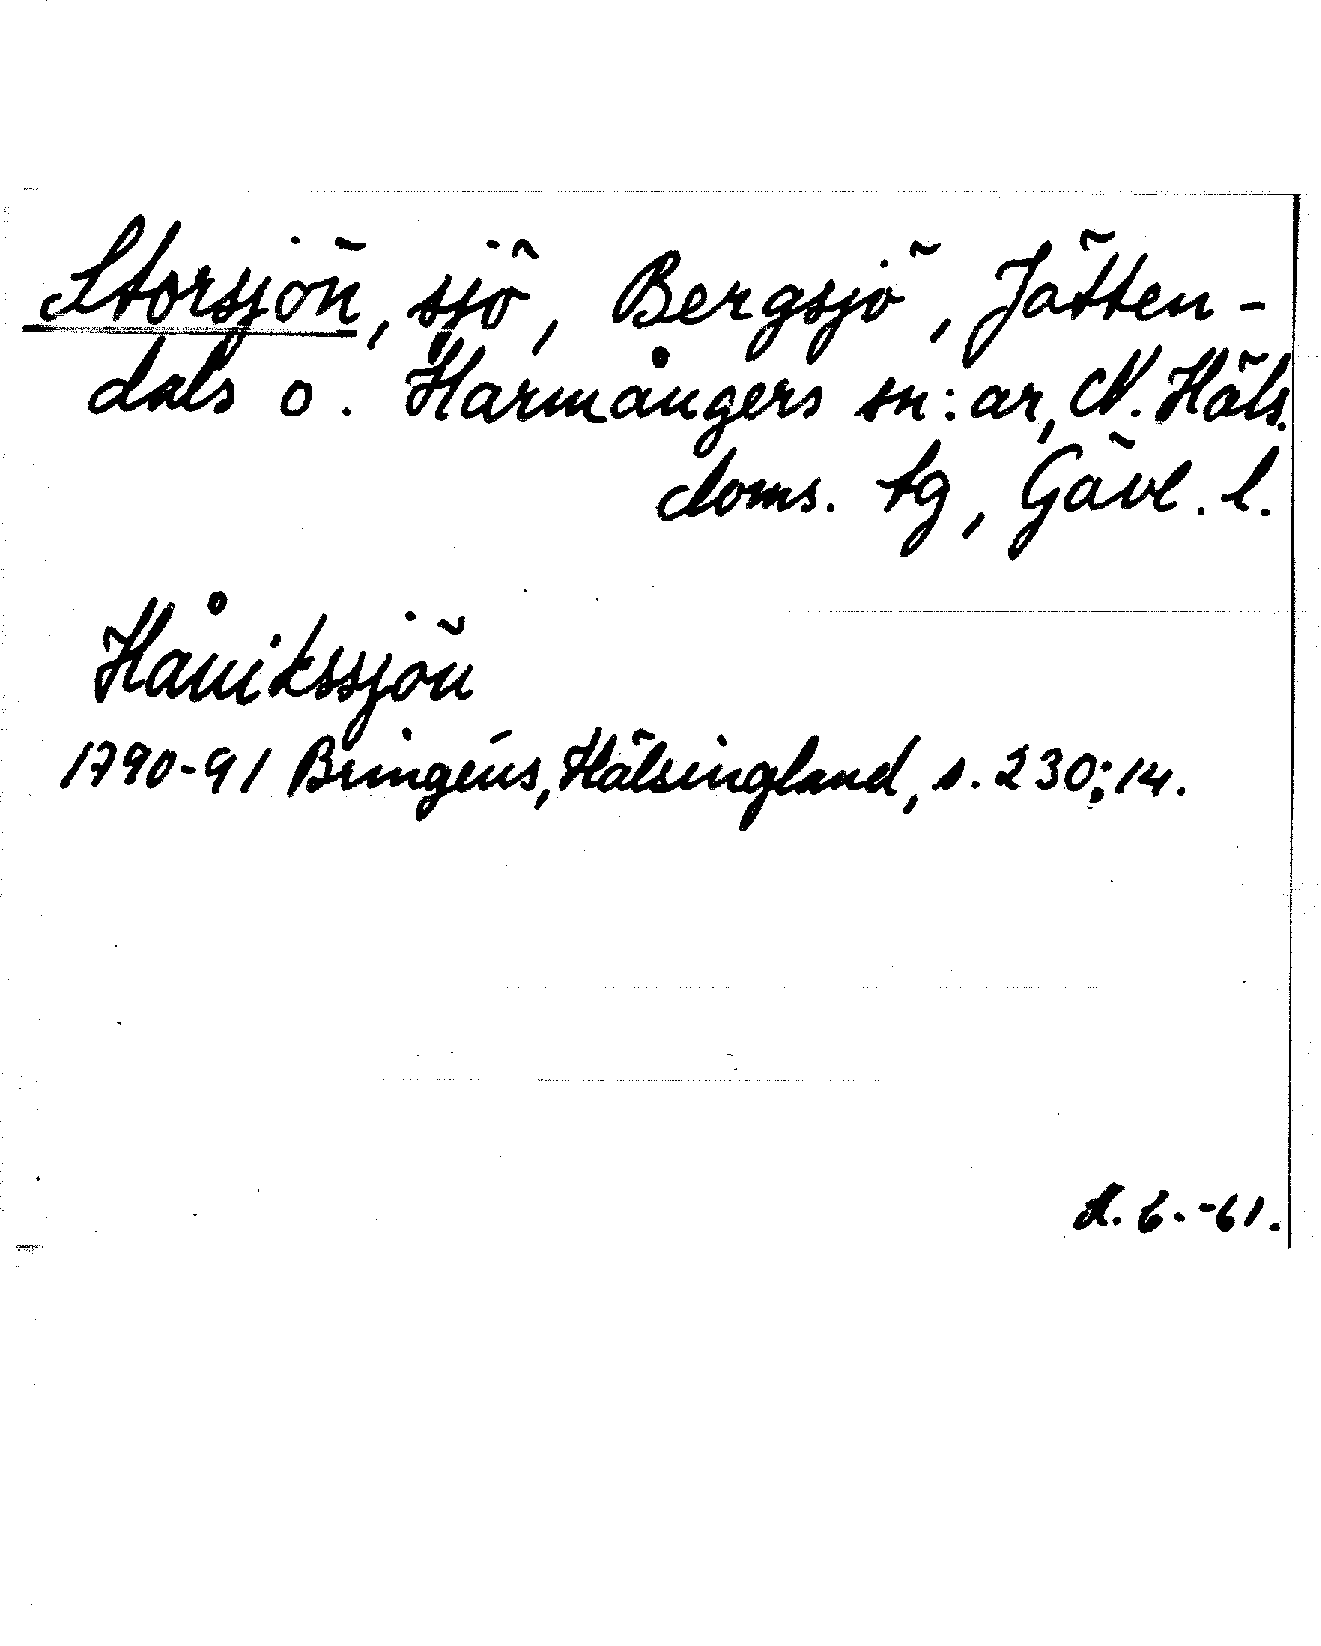 Storsjön, sjö, Bergsjö, Jätten-
dals o. Harmångers sn:ar, N. Häls.
doms. tg, Gävl. l.
Hånikssjön
1790-91 Bringéus, Hälsingland, s. 230; 14.
6.-61.